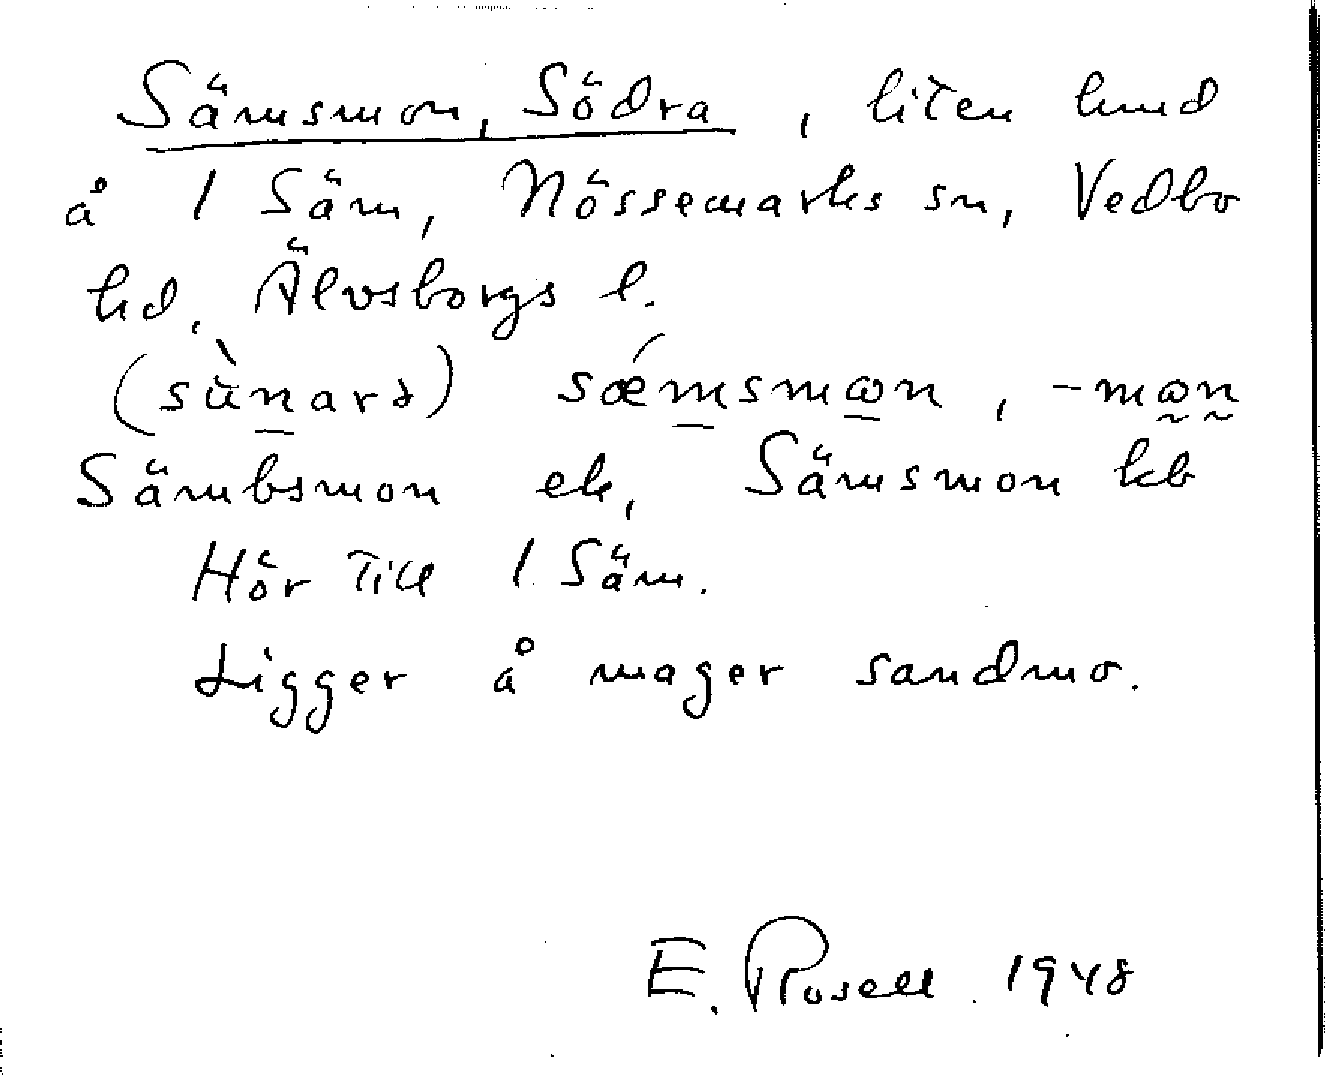 Sämsmon, Södra, liten lund
å 1 Säm, Nössemarks sn, Vedbo
hd, Älvsborgs l.
(sùnarə) sǽmsmɷn, -mɷn
Sämbsmon ek, Sämsmon kb
Hör till 1 Säm.
Ligger å mager sandmo.
E. Rosell 1948